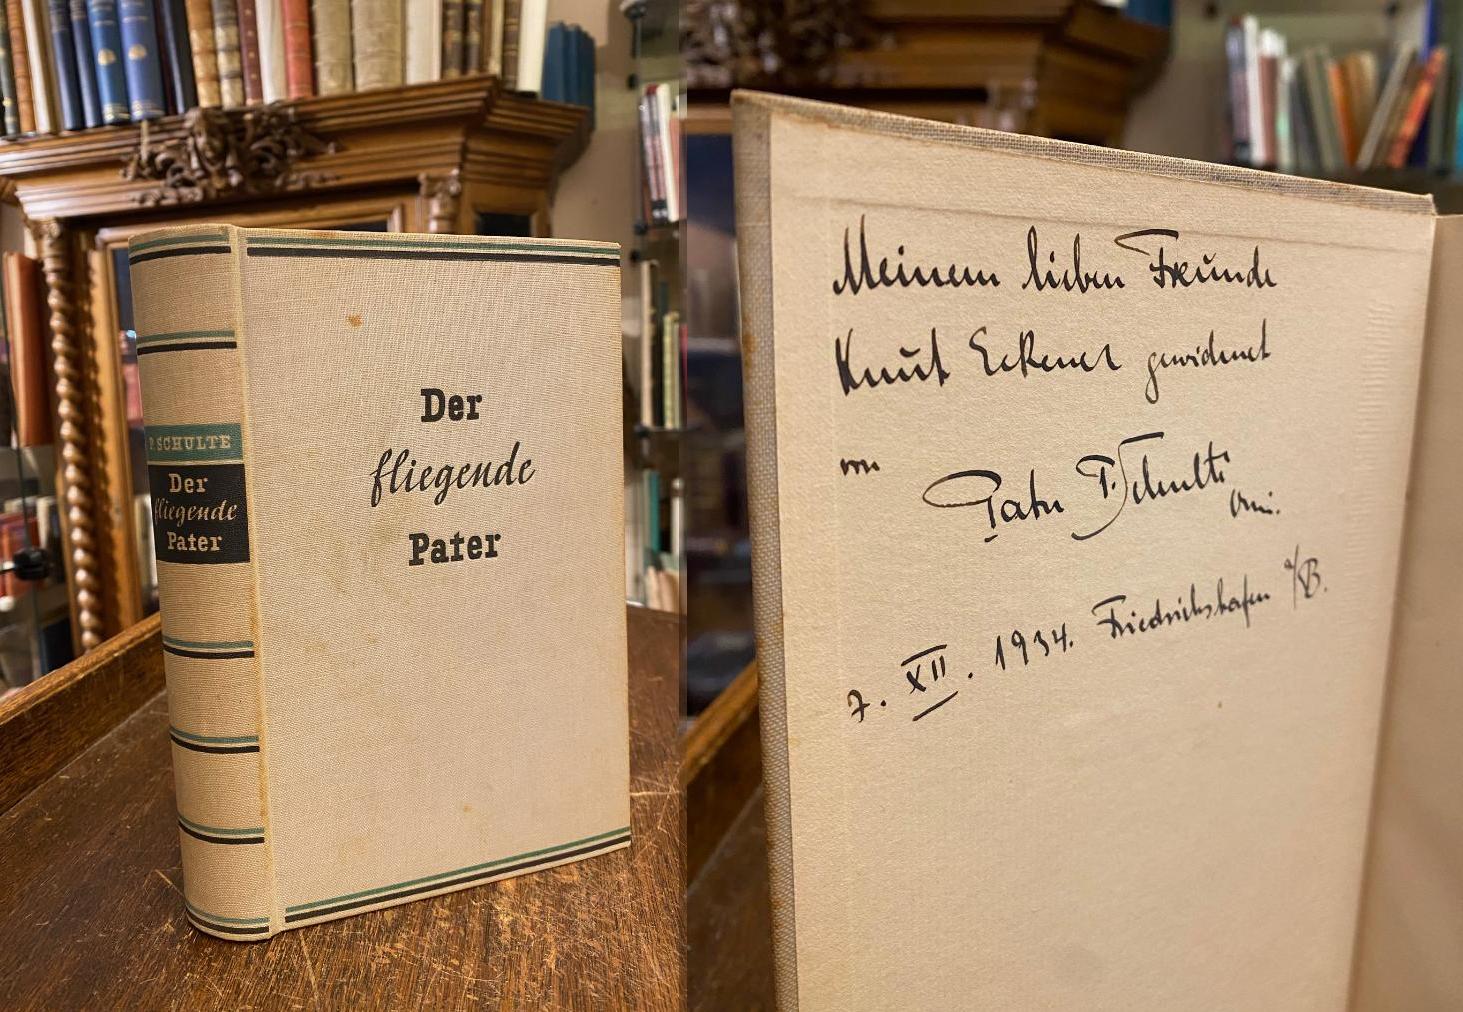 P. SCHULTE
Der
fliegende
Pater
Der
fliegende
Pater
Meinem lieben Freunde
Knut Eckener gewidmet
von
Pater P. Schulte
omi.
7. XII. 1934. Friedrichshafen a/B.